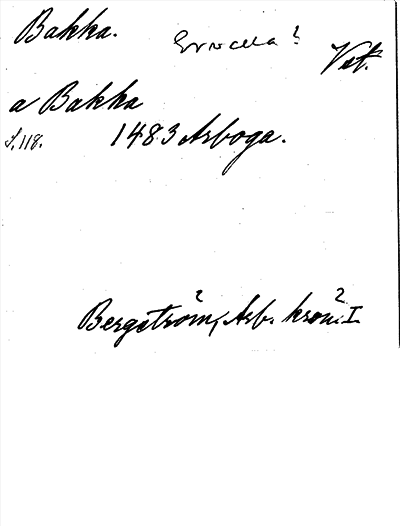 Bakka.
Vät.
a Bakka
S. 118. 1483 Arboga.
Bergström, Arb. krön. I